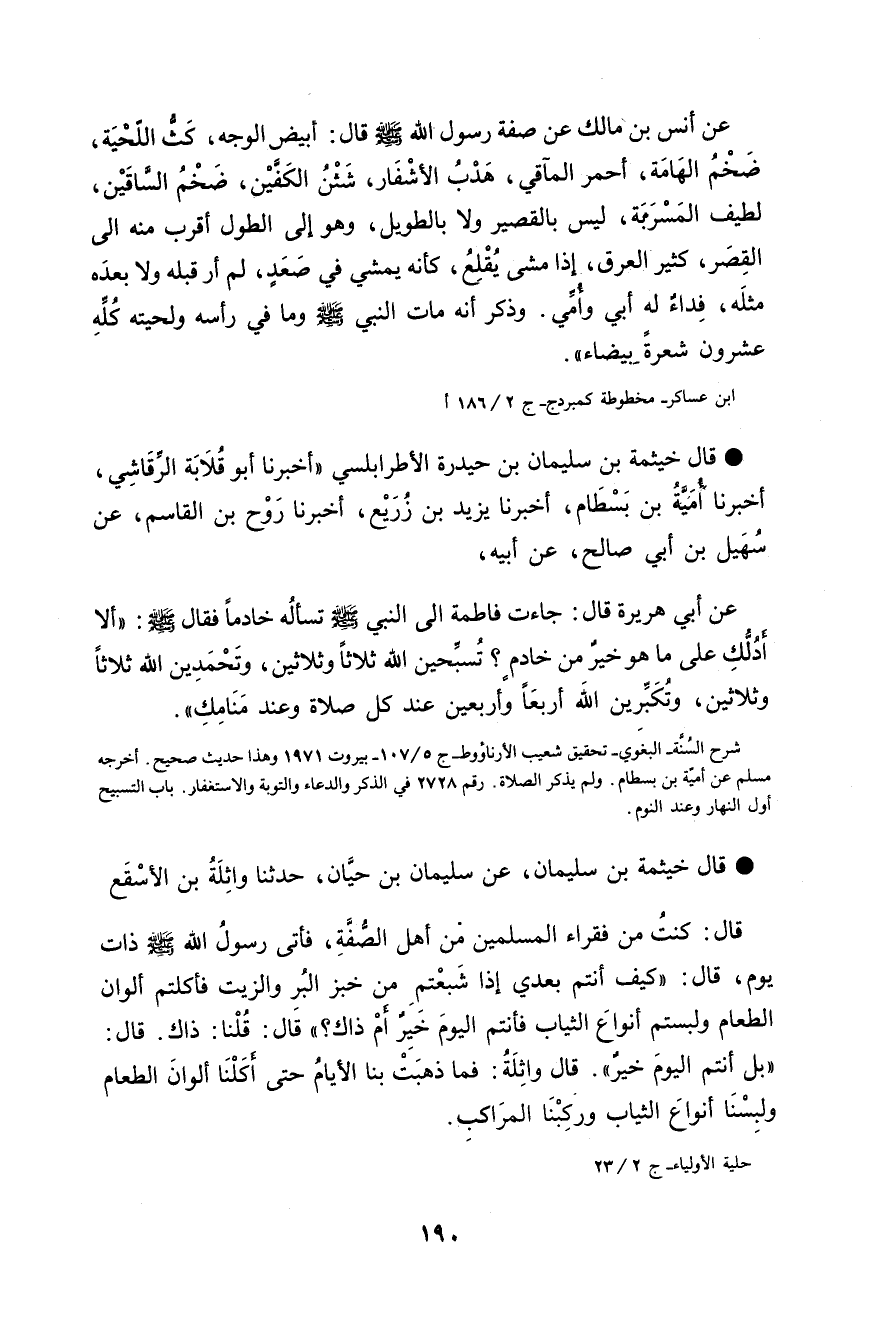 عن أنس بن مالك عن صفة رسول الله ﷺ قال: أبيض الوجه، كَثُّ اللّحْيَة،
ضَخْمُ الهَامَة، أحمر المآقي، هَدْبُ الأشْفَار، شَثْنُ الكَفَّيْن، ضَخْمُ السَّاقَيْن،
لطيف المَسْرَبَة، ليس بالقصير ولا بالطويل، وهو إلى الطول أقرب منه الى
القِصَر، كثير العرق، إذا مشى يُقْلِعُ، كأنه يمشي في صَعَدٍ، لم أر قبله ولا بعدَه
مثلَه، فِداءٌ له أبي وأُمِّي. وذكر أنه مات النبي ﷺ وما في رأسه ولحيته كُلِّهِ
عشرون شعرةً بيضاء».
ابن عساكر۔ مخطوطة كمبردج۔ ج ٢/ ١٨٦ أ
● قال خيثمة بن سليمان بن حيدرة الأطرابلسي «أخبرنا أبو قُلَابَة الرِّقَاشِي،
أخبرنا أُمَيَّةُ بن بَسْطَام، أخبرنا يزيد بن زُرَيْع، أخبرنا رَوْح بن القاسم، عن
سُهَيل بن أبي صالح، عن أبيه،
عن أبي هريرة قال: جاءت فاطمة الى النبي ﷺ تسألُه خادماً فقال ﷺ: «ألا
أَدُلُّكِ على ما هو خيرٌ من خادمٍ؟ تُسبِّحين الله ثلاثاً وثلاثين، وتَحْمَدِين الله ثلاثاً
وثلاثين، وتُكَبِّرين اللهَ أربعَاً وأربعين عند كل صلاة وعند مَنَامِكِ».
شرح السُّنَّة۔ البغوي۔ تحقيق شعيب الأرناؤوط۔ ج ٥/ ١٠٧۔ بيروت ١٩٧١ وهذا حديث صحيح. أخرجه
مسلم عن أميّة بن بسطام. ولم يذكر الصلاة. رقم ٢٧٢٨ في الذكر والدعاء والتوبة والاستغفار. باب التسبيح
أول النهار وعند النوم.
● قال خيثمة بن سليمان، عن سليمان بن حيَّان، حدثنا واثِلَةُ بن الأسْقَع
قال: كنتُ من فقراء المسلمين مْن أهل الصُّفَّةِ، فأتى رسولُ الله ﷺ ذات
يوم، قال: «كيف أنتم بعدي إذا شَبعْتمِ من خبز البُر والزيت فأكلتم ألوان
الطعام ولبستم أنواعَ الثياب فأنتم اليومَ خَيرٌ أمْ ذاك؟» قال: قُلْنا: ذاك. قال:
«بل أنتم اليومَ خيرٌ». قال واثِلَةُ: فما ذهبَتْ بنا الأيامُ حتى أَكَلْنَا ألوانَ الطعام
ولبِسْنَا أنواعَ الثياب وركِبْنَا المرَاكبِ.
حلية الأولياء۔ ج ٢/ ٢٣
١٩٠